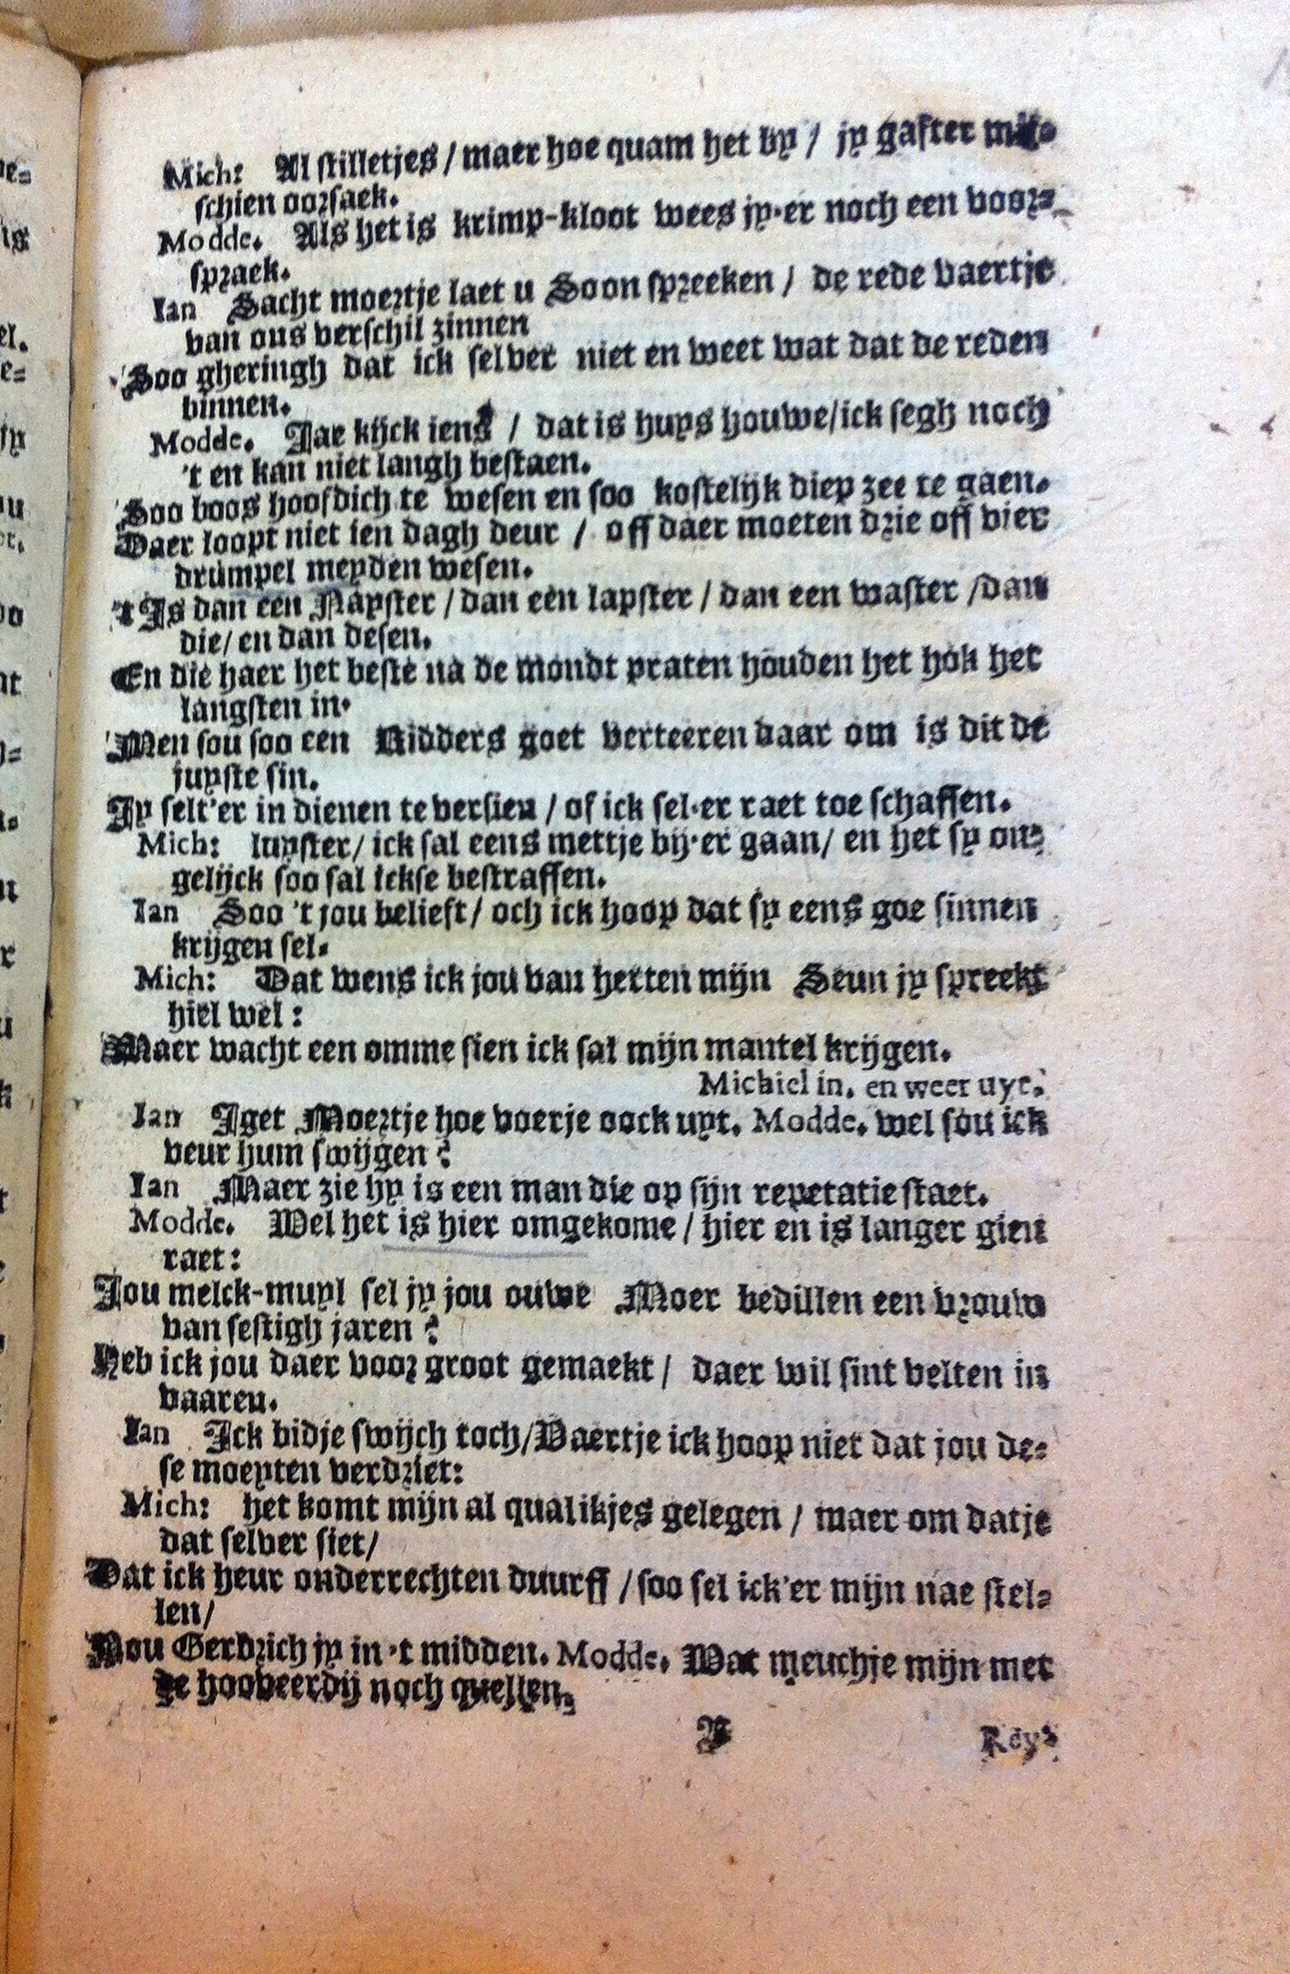 Mich: Al stilletjes / maer hoe quam het by / jy gafter mis-
schien oorsaek.
Modde. Als het is krimp-kloot wees jy-er noch een voor-
spraek.
Ian Sacht moertje laet u Soon spreeken / de rede vaertje
van ons verschil zinnen
Soo gheringh dat ick selver niet en weet wat dat de reden
binnen.
Modde. Jae kijck iens / dat is huys houwe/ick segh noch
't en kan niet langh bestaen.
Soo boos hoofdich te wesen en soo kostelijk diep zee te gaen.
Daer loopt niet ien dagh deur / off daer moeten drie off vier
drumpel meyden wesen.
't Is dan een Nayster / dan een lapster / dan een waster /dan
die/ en dan desen.
En die haer het beste na de mondt praten houden het hok het
langsten in.
Men sou soo een Ridders goet verteeren daar om is dit de
juyste sin.
Jy selt'er in dienen te versien / of ick sel-er raet toe schaffen.
Mich: luyster/ ick sal eens mettje bij-er gaan/ en het sy on-
gelijck soo sal ickse bestraffen.
Ian Soo 't jou belieft/ och ick hoop dat sy eens goe sinnen
krijgen sel.
Mich: Dat wens ick jou van herten mijn Seun jy spreekt
hiel wel:
Maer wacht een omme sien ick sal mijn mantel krijgen.
Michiel in. en weer uyt.
Ian Jget Moertje hoe voerje oock uyt. Modde. wel sou ick
veur hum swijgen?
Ian Maer zie hy is een man die op sijn repetatie staet.
Modde. Wel het is hier omgekome / hier en is langer gien
raet:
Jou melck-muyl sel jy jou ouwe Moer bedillen een vrouw
van sestigh jaren?
Heb ick jou daer voor groot gemaekt / daer wil sint velten in
vaaren.
Ian Ick bidje swijch toch/Vaertje ick hoop niet dat jou de-
se moeyten verdriet:
Mich: het komt mijn al qualikjes gelegen / maer om datje
dat selver siet/
Dat ick heur onderrechten duurff / soo sel ick'er mijn nae stel-
len/
Nou Gerdrich jy in 't midden. Modde. Wat meuchje mijn met
de hooveerdij noch quellen,
B
Rey-